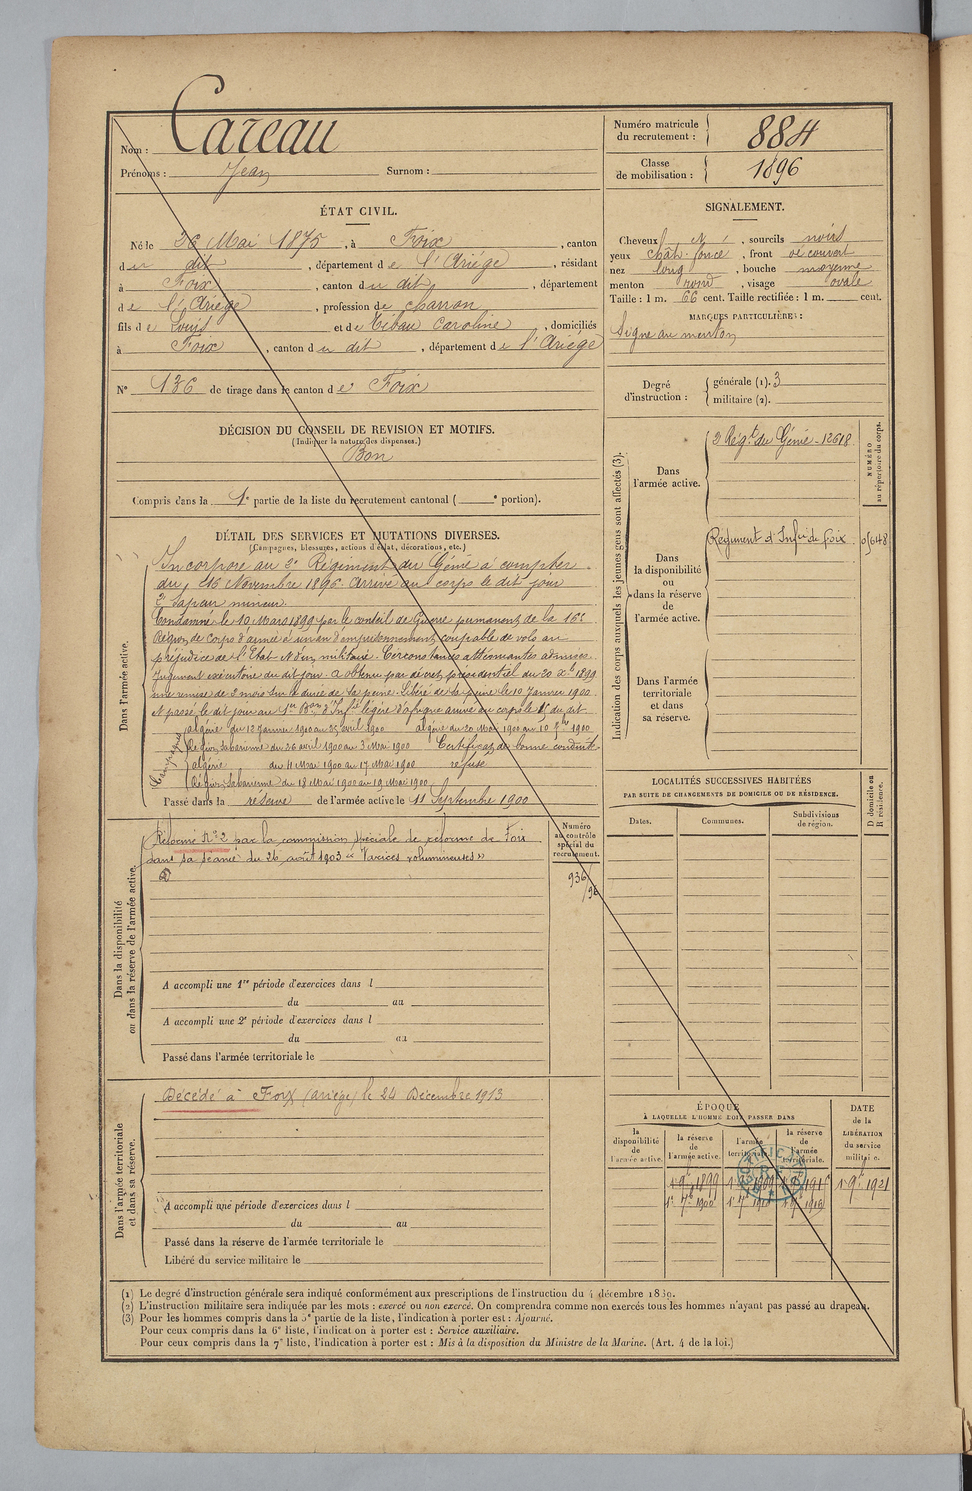 Nom : Careau
Prénoms : Jean Surnom :
Numéro matricule du recrutement : 884
Classe de mobilisation : 1896
ÉTAT CIVIL.
Né le 26 Mai 1875, à Foix, canton
du dit, département de l'Ariège, résidant
à Foix, canton du dit, département
de l'Ariège, profession de charron
fils de Louis et de Tibau Caroline, domiciliés
à Foix, canton du dit, département de l'Ariège
N° 136 de tirage dans le canton de Foix
DÉCISION DU CONSEIL DE REVISION ET MOTIFS.
(Indiquer la nature des dispenses.)
Bon
Compris dans la 1e partie de la liste du recrutement cantonal ( e portion).
SIGNALEMENT.
Cheveux , sourcils noirs
yeux chât. foncé, front découvert
nez long, bouche moyenne
menton rond, visage ovale
Taille : 1 m. 66 cent. Taille rectifiée : 1 m. cent.
MARQUES PARTICULIÈRES :
Signe au menton
Degré d'instruction : générale (1). 3
militaire (2).
DÉTAIL DES SERVICES ET MUTATIONS DIVERSES.
(Campagnes, blessures, actions d'éclat, décorations, etc.)
Dans l'armée active.
Incorporé au 2e Régiment du Génie à compter
du 16 Novembre 1896. Arrivé au corps le dit jour
2e Sapeur mineur.
Condamné le 10 Mars 1899 par le conseil de Guerre permanent de la 16e
Région de corps d'armée à un an d'emprisonnement, coupable de vols au
préjudice de l'Etat et d'un militaire. Circonstances atténuantes admises.
Jugement exécutoire du dit jour. A obtenu par décret présidentiel du 20 Xbre 1899
une remise de 2 mois sur la durée de la peine. Libéré de la peine le 10 Janvier 1900.
et passé le dit jour au 1er Bon d'Inf. légère d'Afrique arrivé au corps le dit
Campagnes
Algérie du 12 Janvier 1900 au 25 avril 1900 Algérie du 20 Mai 1900 au 1900
Région Saharienne du 26 avril 1900 au 3 Mai 1900 Certificat de bonne conduite
Algérie du 4 Mai 1900 au 17 Mai 1900 refusé
Région Saharienne du 18 Mai 1900 au 19 Mai 1900
Passé dans la réserve de l'armée active le 11 Septembre 1900
Indication des corps auxquels les jeunes gens sont affectés (3).
NUMÉRO au répertoire du corps.
Dans l'armée active. 2 Régt du Génie - 12618
Dans la disponibilité ou dans la réserve de l'armée active. Régiment d'Infie de Foix
Dans l'armée territoriale et dans sa réserve.
Dans la disponibilité ou dans la réserve de l'armée active.
Réformé N° 2 par la commission spéciale de réforme de Foix
dans sa séance du 26 août 1903 « Varices volumineuses »
Numéro au contrôle spécial du recrutement.
936/96
A accompli une 1re période d'exercices dans l
du au
A accompli une 2e période d'exercices dans l
du au
Passé dans l'armée territoriale le
LOCALITÉS SUCCESSIVES HABITÉES
PAR SUITE DE CHANGEMENTS DE DOMICILE OU DE RÉSIDENCE.
Dates. Communes. Subdivisions de région. D domicile ou R résidence.
Dans l'armée territoriale et dans sa réserve.
Décédé à Foix (Ariège) le 24 Décembre 1913
A accompli une période d'exercices dans l
du au
Passé dans la réserve de l'armée territoriale le
Libéré du service militaire le
ÉPOQUE
À LAQUELLE L'HOMME DOIT PASSER DANS
la disponibilité de l'armée active. la réserve de l'armée active. l'armée territoriale. la réserve de l'armée territoriale.
DATE de la LIBÉRATION du service militaire.
1899 1909 1er 9bre 1921
1900
(1) Le degré d'instruction générale sera indiqué conformément aux prescriptions de l'instruction du 4 décembre 1889.
(2) L'instruction militaire sera indiquée par les mots : exercé ou non exercé. On comprendra comme non exercés tous les hommes n'ayant pas passé au drapeau.
(3) Pour les hommes compris dans la 5e partie de la liste, l'indication à porter est : Ajourné.
Pour ceux compris dans la 6e liste, l'indication à porter est : Service auxiliaire.
Pour ceux compris dans la 7e liste, l'indication à porter est : Mis à la disposition du Ministre de la Marine. (Art. 4 de la loi.)